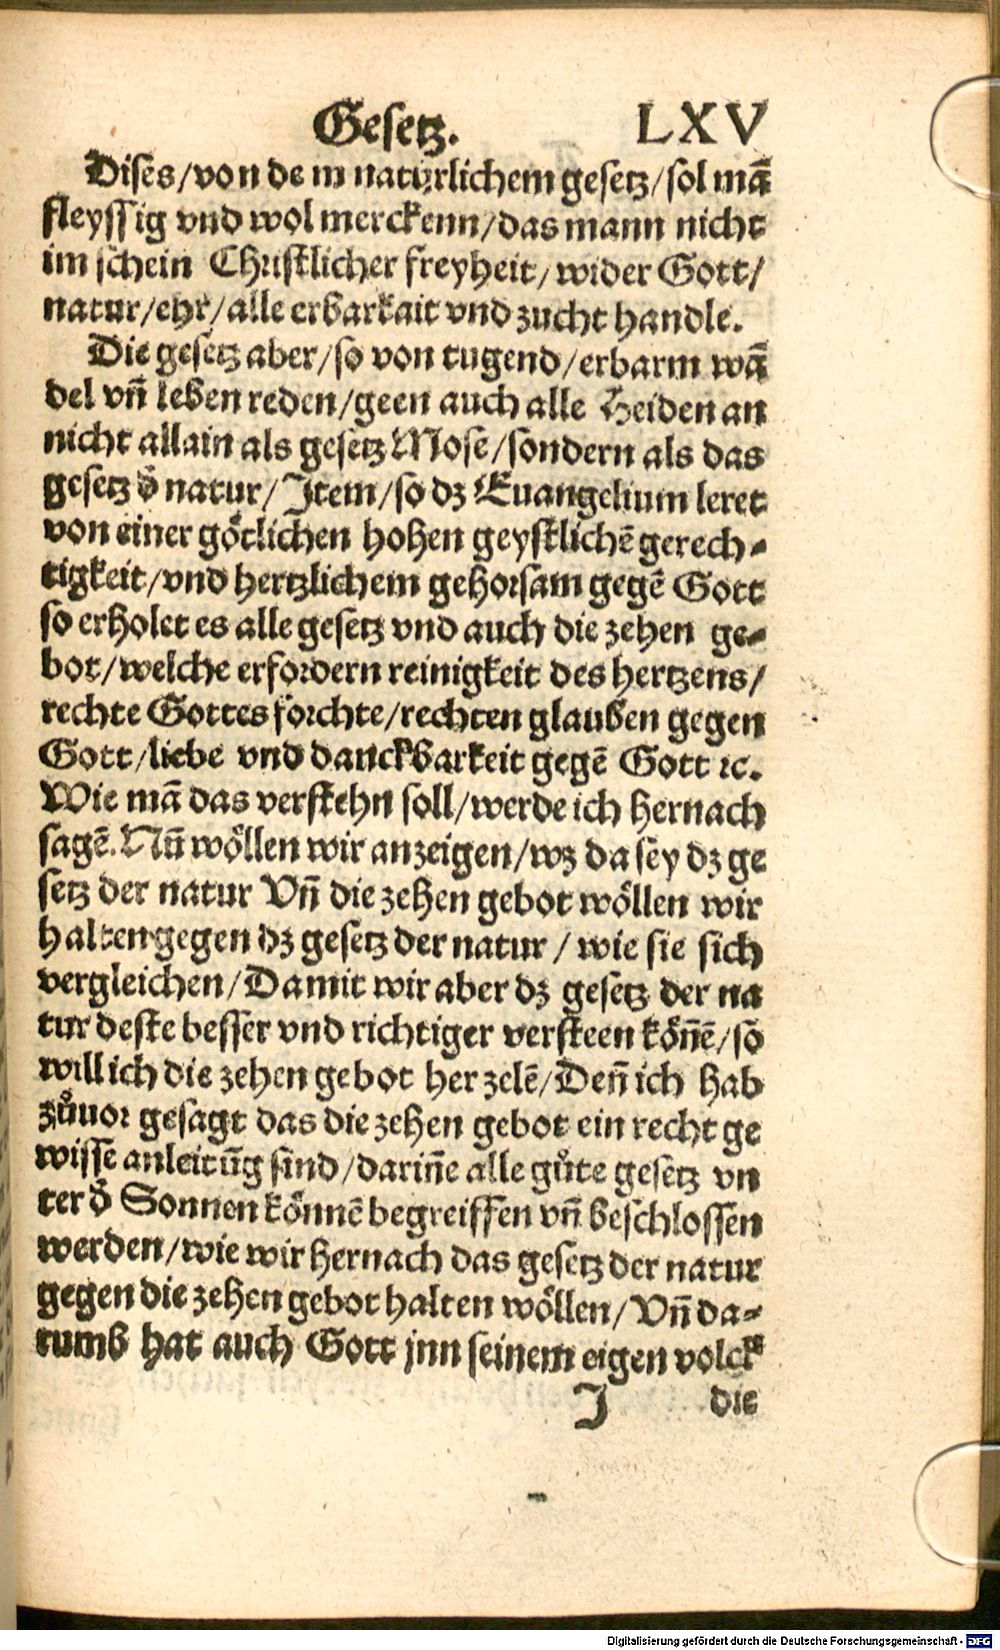 Gesetz. LXV
Dises/von de m naturlichem gesetz/sol mã
fleyssig vnd wol merckenn/das mann nicht
im schein Christlicher freyheit/wider Gott/
natur/ehr/alle erbarkait vnd zucht handle.
Die gesetz aber/so von tugend/erbarm wã
del vñ leben reden/geen auch alle Heiden an
nicht allain als gesetz Mose/sondern als das
gesetz d̕ natur/Item/so dz Euangelium leret
von einer götlichen hohen geystlichẽ gerech-
tigkeit/vnd hertzlichem gehorsam gegẽ Gott
so erholet es alle gesetz vnd auch die zehen ge-
bot/welche erfordern reinigkeit des hertzens/
rechte Gottes förchte/rechten glauben gegen
Gott/liebe vnd danckbarkeit gegẽ Gott ꝛc.
Wie mã das verstehn soll/werde ich hernach
sagẽ. Nũ wöllen wir anzeigen/wz da sey dz ge
setz der natur Vñ die zehen gebot wöllen wir
halten gegen dz gesetz der natur / wie sie sich
vergleichen/Damit wir aber dz gesetz der na
tur deste besser vnd richtiger versteen köñẽ/so
will ich die zehen gebot her zelẽ/Deñ ich hab
zůuor gesagt das die zehen gebot ein recht ge
wisse anleitũg sind/dariñe alle gůte gesetz vn
ter d̕ Sonnen könnẽ begreiffen vñ beschlossen
werden/wie wir hernach das gesetz der natur
gegen die zehen gebot halten wöllen/Vñ da-
rumb hat auch Gott jnn seinem eigen volck
J die
Digitalisierung gefördert durch die Deutsche Forschungsgemeinschaft - DFG